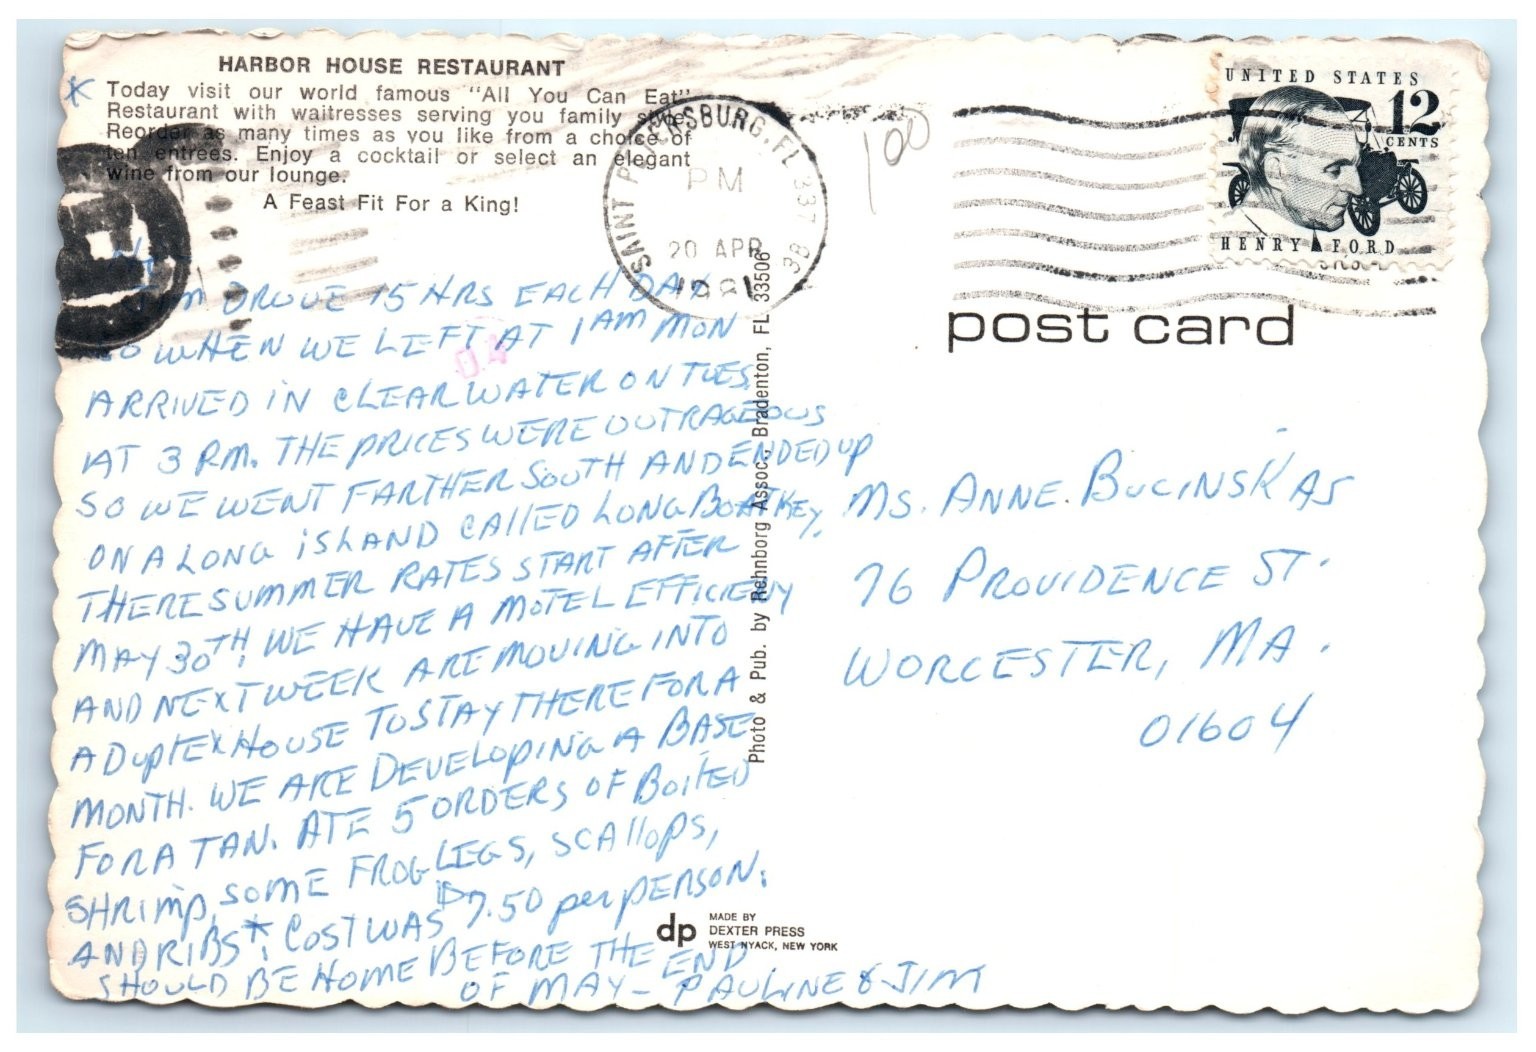 HARBOR HOUSE RESTAURANT
* Today visit our world famous "All You Can Eat"
Restaurant with waitresses serving you family style.
Reorder as many times as you like from a choice of
ten entrees. Enjoy a cocktail or select an elegant
wine from our lounge.
A Feast Fit For a King!
SAINT PETERSBURG, FL 337
PM
20 APR
1981
3B
100
UNITED STATES
12
CENTS
HENRY FORD
post card
Hi,
Jim DROVE 15 HRS EACH DAY
SO WHEN WE LEFT AT 1 AM MON
ARRIVED IN CLEARWATER ON TUES.
AT 3 P.M. THE PRICES WERE OUTRAGEOUS
SO WE WENT FARTHER SOUTH AND ENDED UP
ON A LONG ISLAND CALLED LONG BOAT KEY.
THERE SUMMER RATES START AFTER
MAY 30TH. WE HAVE A MOTEL EFFICIENY
AND NEXT WEEK ARE MOVING INTO
A DUPLEX HOUSE TO STAY THERE FOR A
MONTH. WE ARE DEVELOPING A BASE
FOR A TAN. ATE 5 ORDERS OF BOILED
SHRIMP, SOME FROG LEGS, SCALLOPS,
AND RIBS*. COST WAS $7.50 per PERSON.
SHOULD BE HOME BEFORE THE END
OF MAY - PAULINE & JIM
Photo & Pub. by Rehnborg Assoc., Bradenton, FL 33506
Ms. ANNE. BUCINSKAS
76 PROVIDENCE ST.
WORCESTER, MA.
01604
dp
MADE BY
DEXTER PRESS
WEST NYACK, NEW YORK